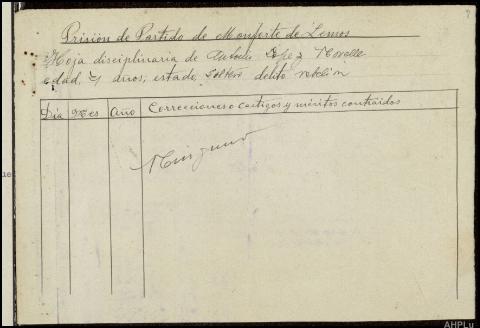 Prisión de Partido de Monforte de Lemos
Hoja disciplinaria de Antonio Lopez Novelle
edad, años; estado soltero delito rebelión
Día Mes Año Correcciones o castigos y méritos contraidos
Ninguno
AHPLu